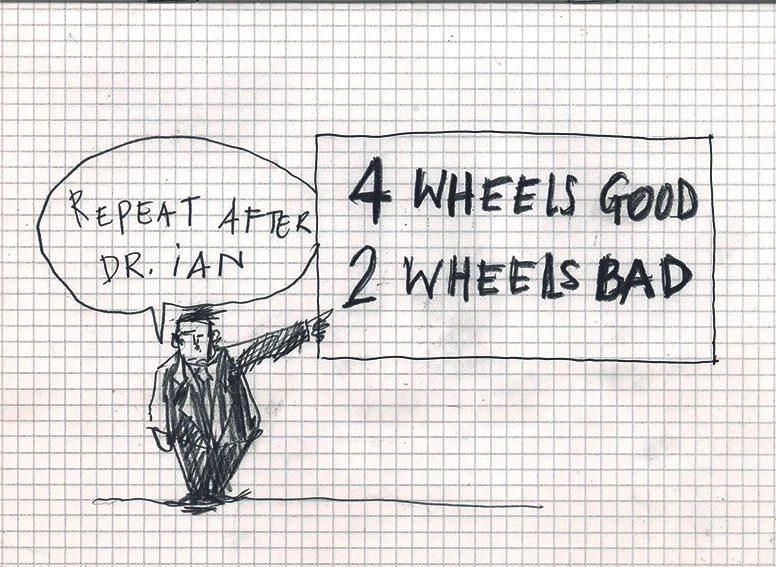 REPEAT AFTER
DR. iAN
4 WHEELS GOOD
2 WHEELS BAD